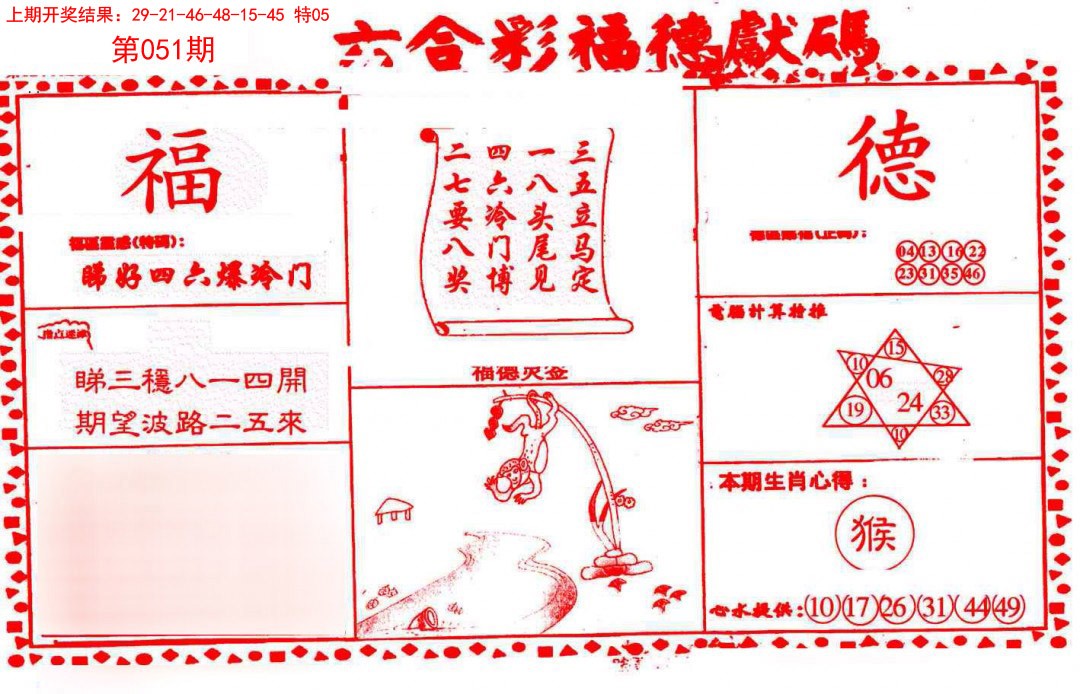 上期开奖结果：29-21-46-48-15-45 特05
第051期
六合彩福德獻碼
福
福區靈感(特碼)：
睇好四六爆冷门
睇三穩八一四開
期望波路二五來
三五立马定
一八头尾见
四六冷门博
二七要八奖
福德灵签
德
04 13 16 22
23 31 35 46
電腦計算推
15
10 28
06
24
19 33
10
本期生肖心得：
猴
心水提供：(10)(17)(26)(31)(44)(49)